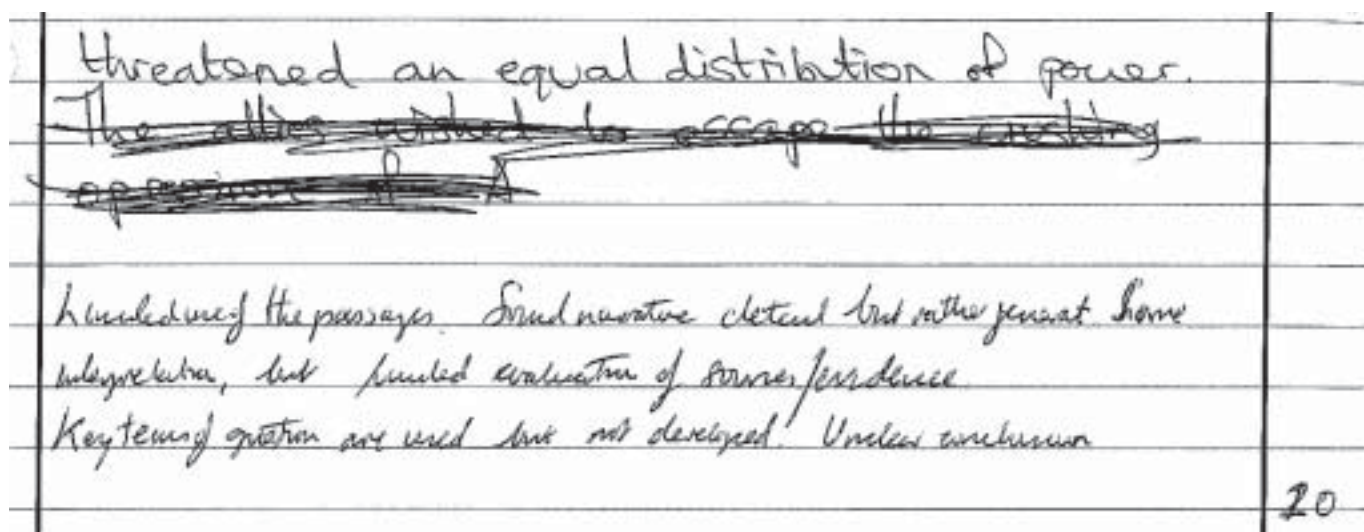 threatened an equal distribution of power.
The allies wished to escape the crushing
oppression of A
Limited use of the passages. Sound narrative detail but rather general. Some
interpretation, but limited evaluation of sources/evidence.
Key terms of question are used but not developed. Unclear conclusion
20